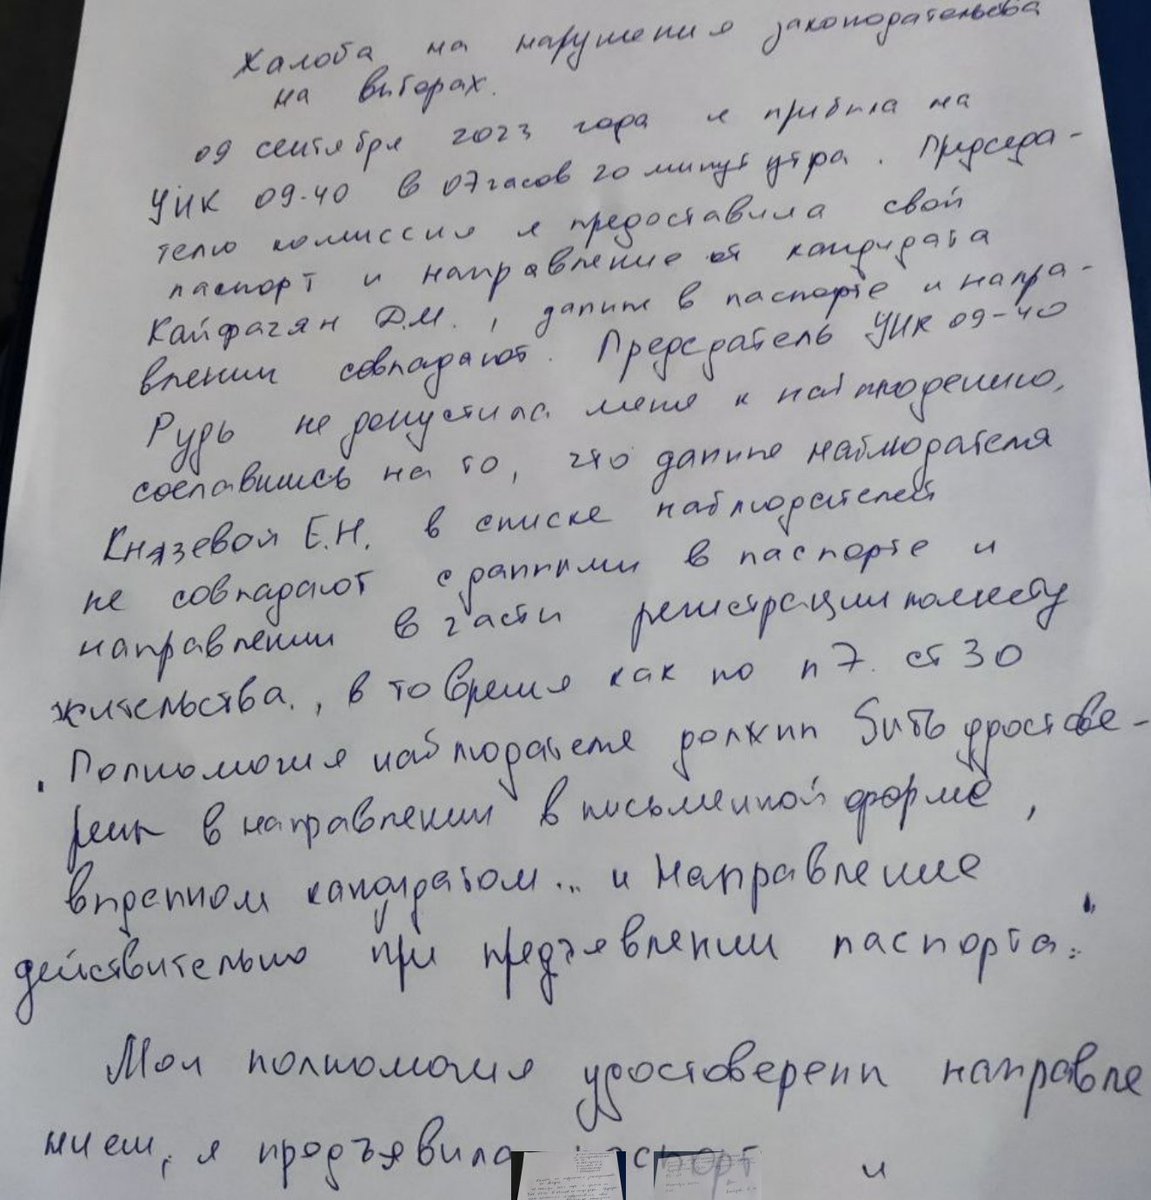 Жалоба на нарушения законодательства
на выборах.
09 сентября 2023 года я прибыла на
УИК 09-40 в 07 часов 20 минут утра. Председа-
телю комиссии я предоставила свой
паспорт и направление от кандидата
Кайфагян Д.М., данные в паспорте и напра-
влении совпадают. Председатель УИК 09-40
Рудь не допустила меня к наблюдению,
сославшись на то, что данные наблюдателя
Князевой Е.Н. в списке наблюдателей
не совпадают с данными в паспорте и
направлении в части регистрации по месту
жительства., в то время как по п 7. ст 30
Полномочия наблюдателя должны быть удостове-
рены в направлении в письменной форме,
кандидатом... и направление
действительно при предъявлении паспорта."
Мои полномочия удостоверены направле
нием, я предъявила паспорт и